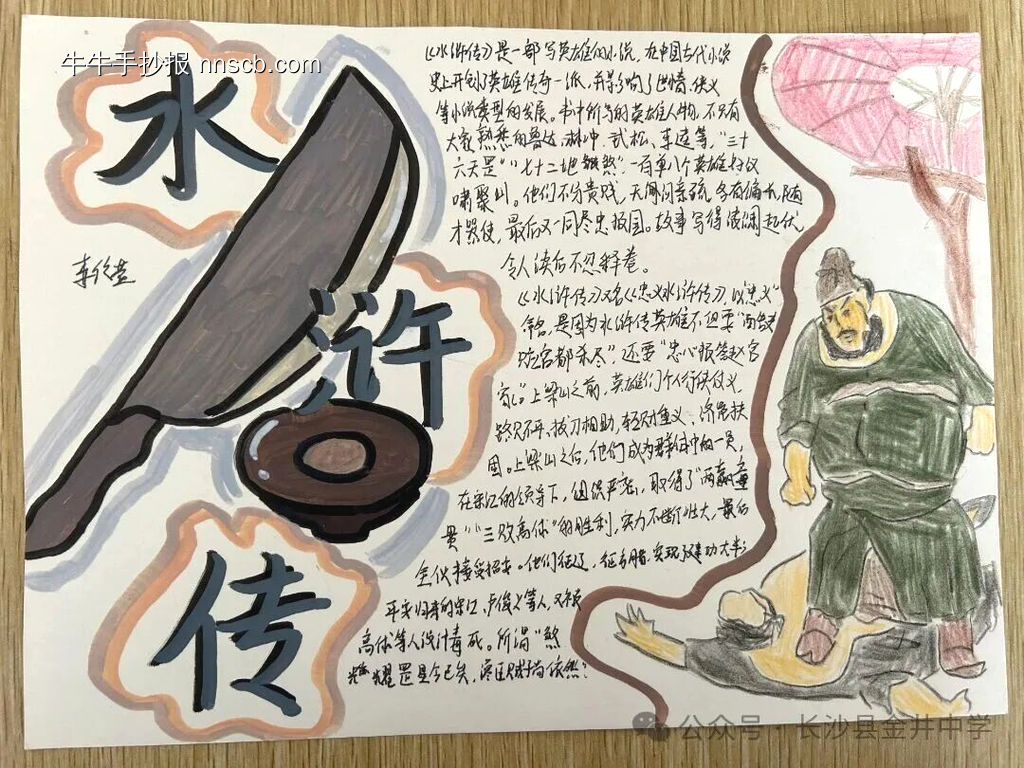 牛牛手抄报 nnscb.com
水
浒
传
《水浒传》是一部写英雄的小说，在中国古代小说
史上开创了英雄传奇一派，并影响了世情、侠义
等小说类型的发展。书中所写的英雄人物，不只有
大家熟悉的鲁达、林冲、武松、李逵等，“三十
六天罡”“七十二地煞”一百单八个英雄好汉
啸聚山。他们不分贵贱，无问亲疏，各有偏长，随
才器使，最后又一同尽忠报国。故事写得波澜起伏，
令人读后不忍释卷。
《水浒传》又名《忠义水浒传》，以“忠义”
名，是因为水浒传英雄不但要“酷吏
赃官都杀尽”，还要“忠心报答赵官
家”。上梁山之前，英雄们个人行侠仗义，
路见不平，拔刀相助，轻财重义、济危扶
困。上梁山之后，他们成为群体中的一员，
在宋江的领导下，组织严密，取得了“两赢童
贯”“三败高俅”的胜利，实力不断壮大，最后
全伙接受招安。他们征辽、征方腊，实现了建功
平安归来的宋江、卢俊义等人，又被
高俅等人设计毒死。所谓“煞
曜罡星今已矣，谗臣贼子尚依然！
公众号·长沙县金井中学